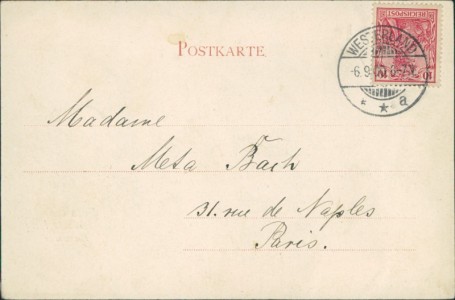 POSTKARTE.
REICHSPOST
10 10
WESTERLAND
* * a
Madame
Meta Bach
31. rue de Naples
Paris.